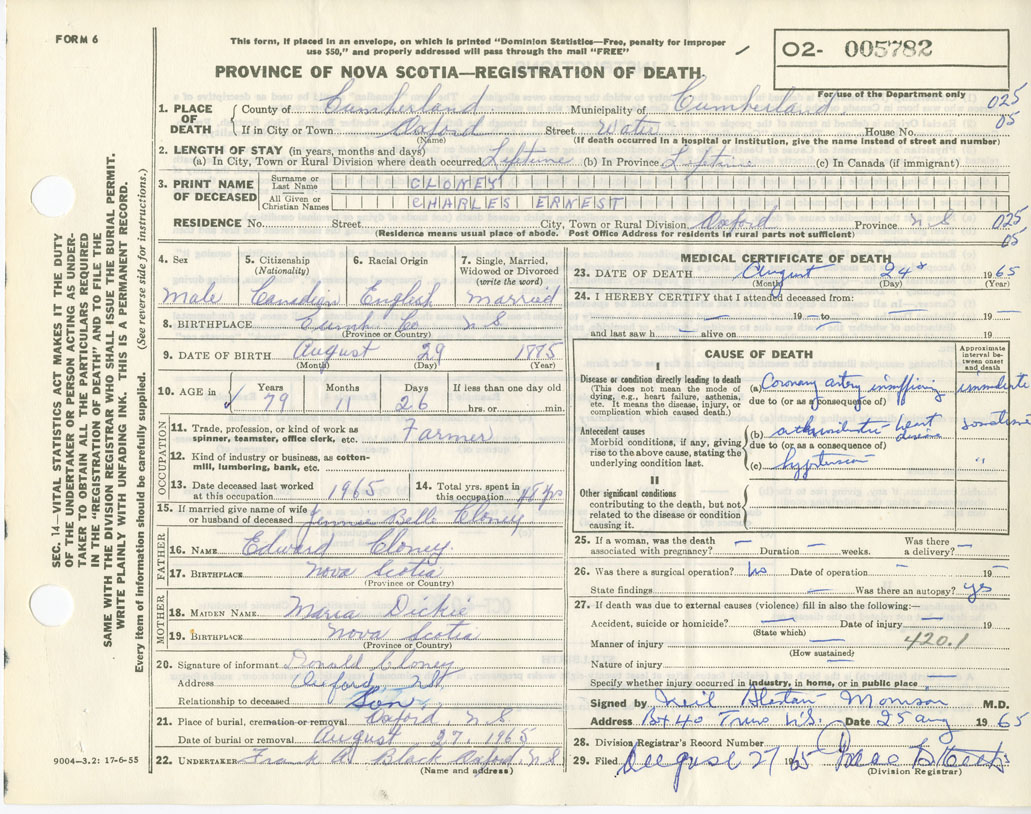 FORM 6
This form, if placed in an envelope, on which is printed "Dominion Statistics—Free, penalty for improper
use $50," and properly addressed will pass through the mail "FREE"
O2- 005782
PROVINCE OF NOVA SCOTIA—REGISTRATION OF DEATH.
For use of the Department only
1. PLACE OF DEATH County of Cumberland Municipality of Cumberland 025
If in City or Town Oxford Street Water House No. 05
(Name) (If death occurred in a hospital or institution, give the name instead of street and number)
2. LENGTH OF STAY (in years, months and days)
(a) In City, Town or Rural Division where death occurred Lifetime (b) In Province Lifetime (c) In Canada (if immigrant)
3. PRINT NAME OF DECEASED Surname or Last Name CLONEY
All Given or Christian Names CHARLES ERNEST
RESIDENCE No. Street City, Town or Rural Division Oxford Province N S 025
(Residence means usual place of abode. Post Office Address for residents in rural parts not sufficient) 05
SEC. 14—VITAL STATISTICS ACT MAKES IT THE DUTY
OF THE UNDERTAKER OR PERSON ACTING AS UNDER-
TAKER TO OBTAIN ALL THE PARTICULARS REQUIRED
IN THE "REGISTRATION OF DEATH" AND TO FILE THE
SAME WITH THE DIVISION REGISTRAR WHO SHALL ISSUE THE BURIAL PERMIT.
WRITE PLAINLY WITH UNFADING INK. THIS IS A PERMANENT RECORD.
Every item of information should be carefully supplied. (See reverse side for instructions.)
4. Sex 5. Citizenship (Nationality) 6. Racial Origin 7. Single, Married, Widowed or Divorced (write the word)
Male Canadian English married
8. BIRTHPLACE Cumb. Co. N S
(Province or Country)
9. DATE OF BIRTH August 29 1885
(Month) (Day) (Year)
10. AGE in Years Months Days If less than one day old
79 11 26 hrs. or min.
OCCUPATION
11. Trade, profession, or kind of work as spinner, teamster, office clerk, etc. Farmer
12. Kind of industry or business, as cotton-mill, lumbering, bank, etc.
13. Date deceased last worked at this occupation 1965 14. Total yrs. spent in this occupation yrs
15. If married give name of wife or husband of deceased Jennie Belle Cloney
FATHER
16. NAME Edward Cloney.
17. BIRTHPLACE Nova Scotia
(Province or Country)
MOTHER
18. MAIDEN NAME Maria Dickie
19. BIRTHPLACE Nova Scotia
(Province or Country)
20. Signature of informant Donald Cloney
Address Oxford N.S.
Relationship to deceased Son
21. Place of burial, cremation or removal Oxford, N.S
Date of burial or removal August 27, 1965
22. UNDERTAKER Frank A. Black Oxford, N S
(Name and address)
9004—3.2: 17-6-55
MEDICAL CERTIFICATE OF DEATH
23. DATE OF DEATH August 24 1965
(Month) (Day) (Year)
24. I HEREBY CERTIFY that I attended deceased from:
— 19 — to — 19 —
and last saw h — alive on — 19
CAUSE OF DEATH
Approximate interval between onset and death
I
Disease or condition directly leading to death (a) Coronary artery insufficiency immediate
(This does not mean the mode of dying, e.g., heart failure, asthenia, etc. It means the disease, injury, or complication which caused death.)
due to (or as a consequence of)
Antecedent causes (b) arteriosclerotic heart disease
Morbid conditions, if any, giving rise to the above cause, stating the underlying condition last.
due to (or as a consequence of)
(c) hypertension "
II
Other significant conditions contributing to the death, but not related to the disease or condition causing it.
25. If a woman, was the death associated with pregnancy? — Duration — weeks. Was there a delivery? —
26. Was there a surgical operation? No Date of operation — 19 —
State findings — Was there an autopsy? yes
27. If death was due to external causes (violence) fill in also the following:—
Accident, suicide or homicide? — Date of injury — 19
(State which)
Manner of injury — 420.1
(How sustained)
Nature of injury —
Specify whether injury occurred in industry, in home, or in public place —
Signed by Neil Alastair Morrison M.D.
Address Box 40 Truro N.S. Date 25 Aug 1965
28. Division Registrar's Record Number
29. Filed August 27 1965
(Division Registrar)